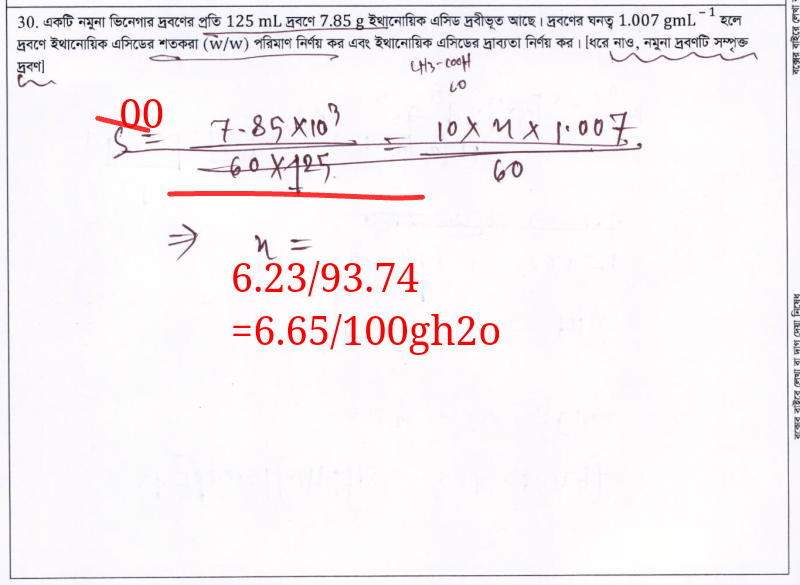 30. একটি নমুনা ভিনেগার দ্রবণের প্রতি 125 mL দ্রবণে 7.85 g ইথানোয়িক এসিড দ্রবীভূত আছে। দ্রবণের ঘনত্ব 1.007 gmL⁻¹ হলে
দ্রবণে ইথানোয়িক এসিডের শতকরা (w/w) পরিমাণ নির্ণয় কর এবং ইথানোয়িক এসিডের দ্রাব্যতা নির্ণয় কর। [ধরে নাও, নমুনা দ্রবণটি সম্পৃক্ত
দ্রবণ]
CH3-COOH
60
00
S = 7.85×10³ / 60×125 = 10×x×1.007 / 60
⇒ x =
6.23/93.74
=6.65/100gh2o